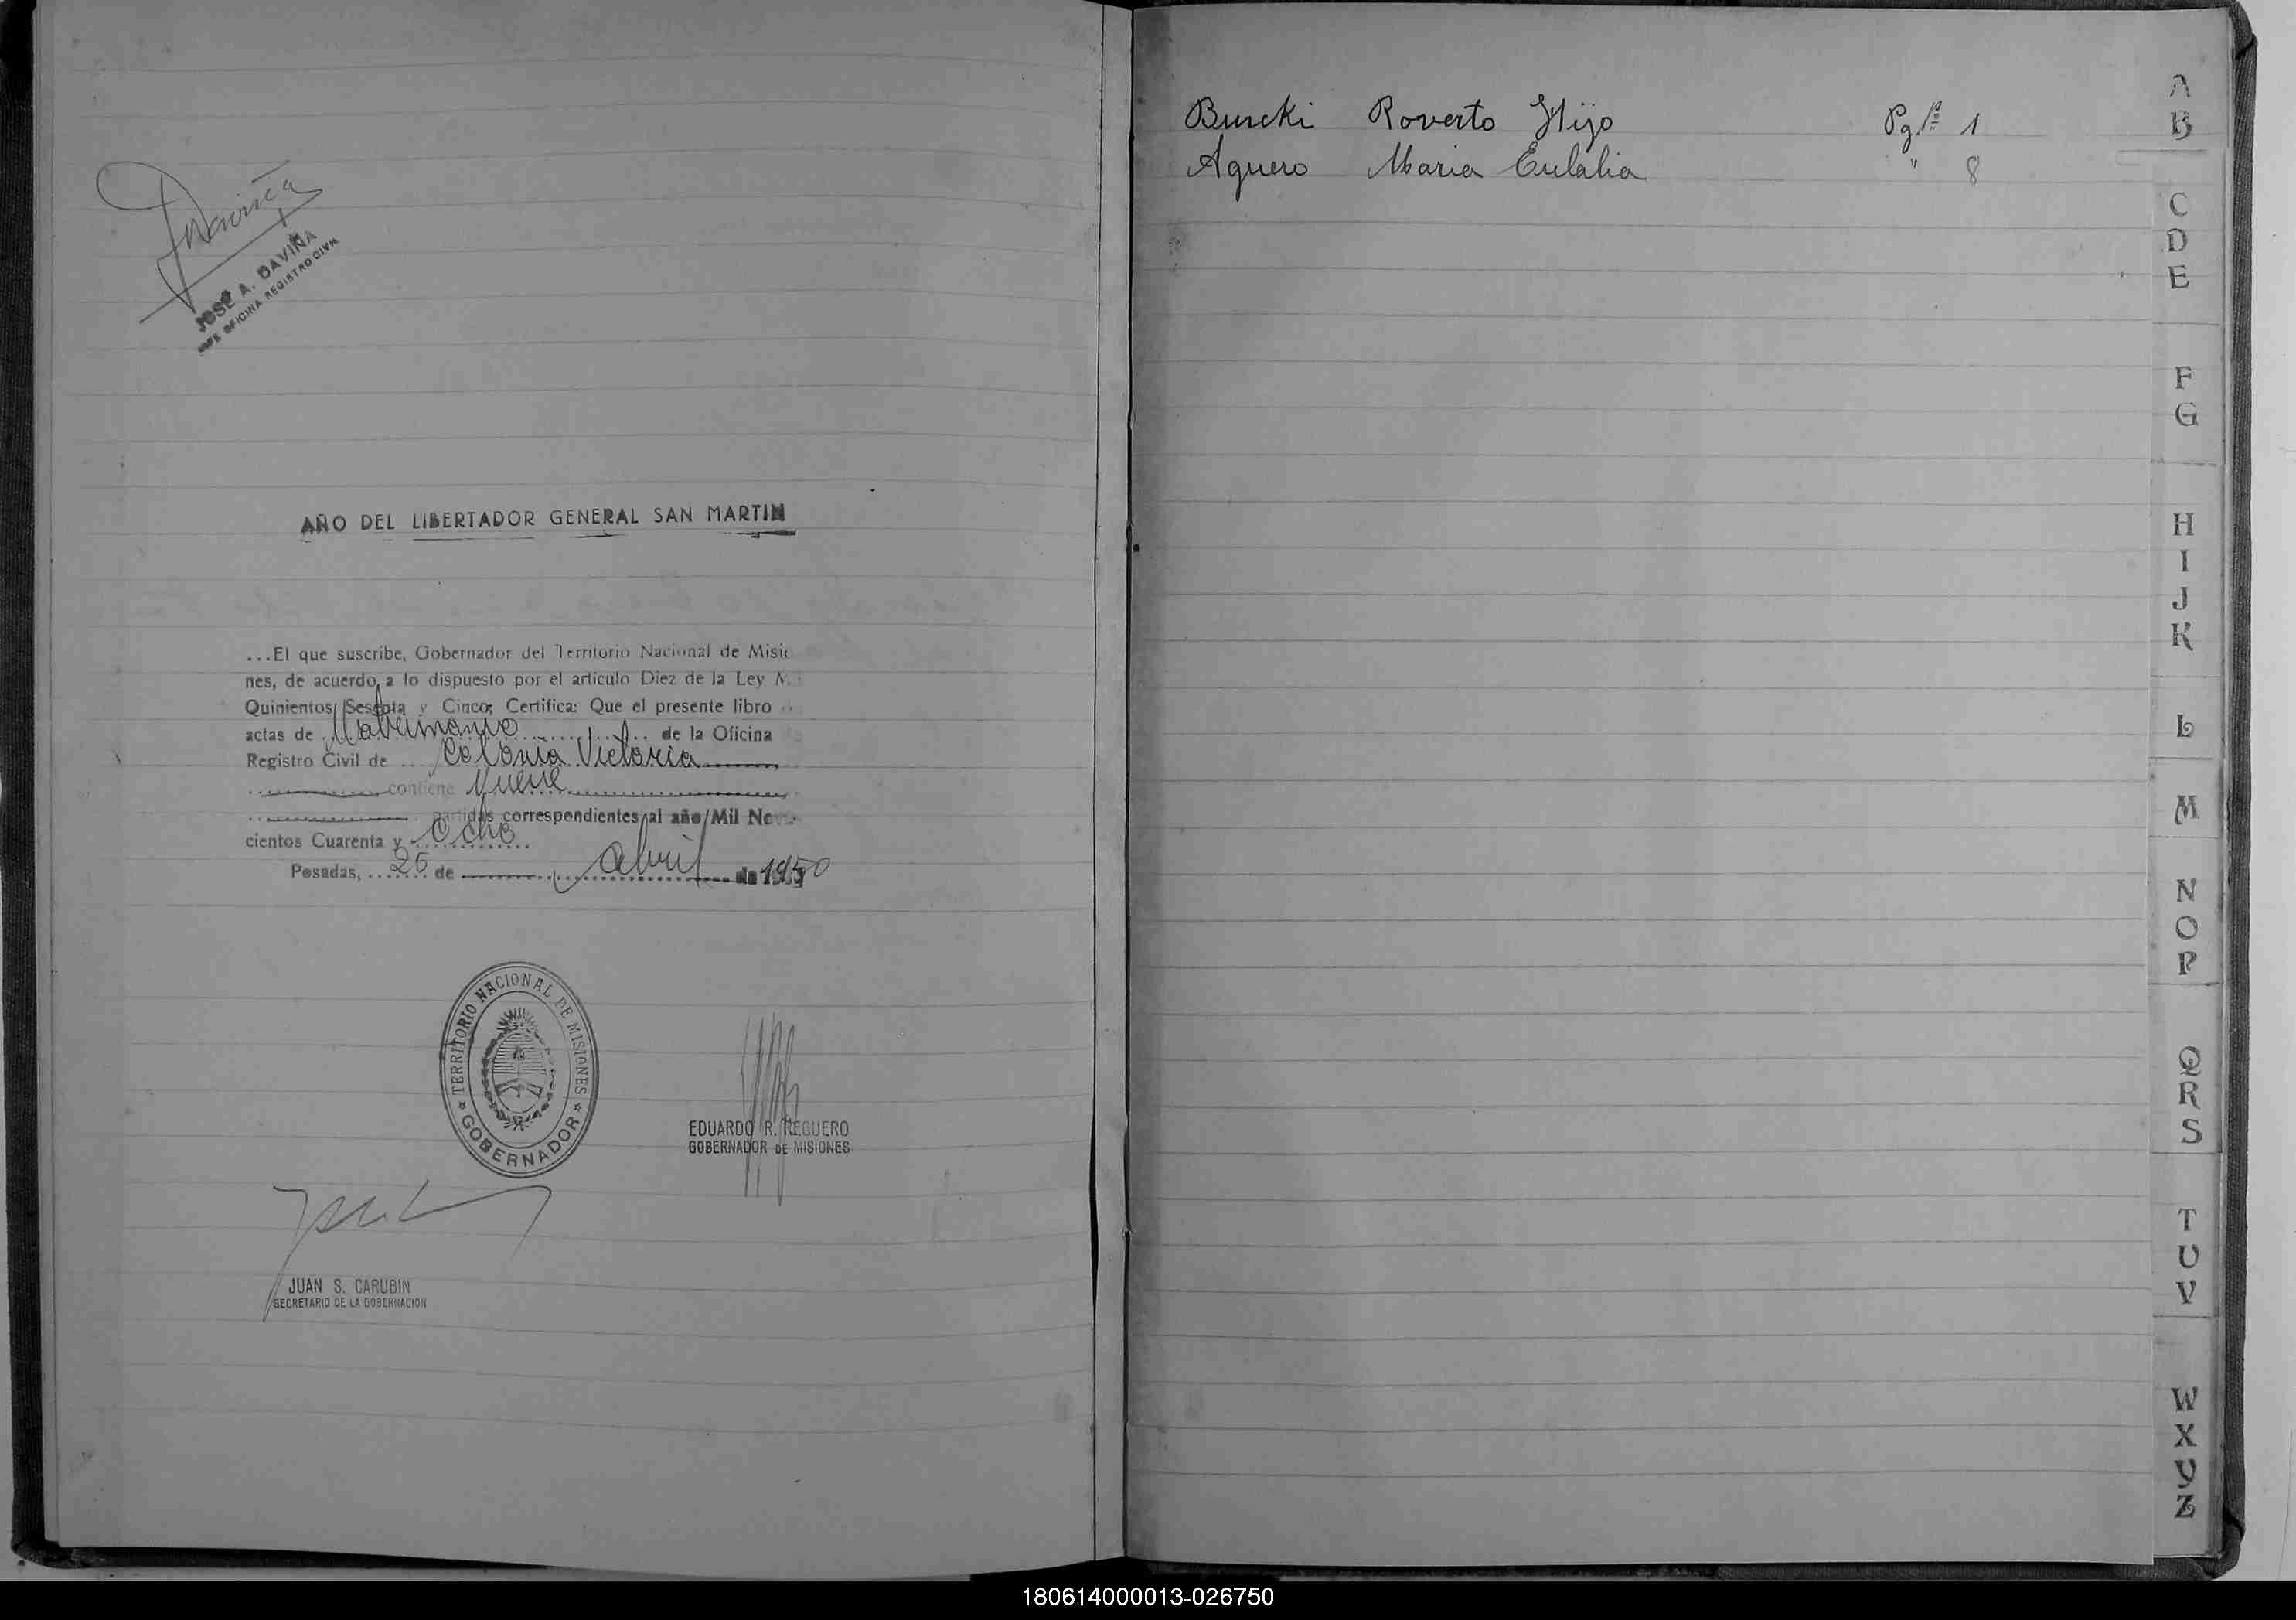 JOSÉ A. DAVIÑA
JEFE OFICINA REGISTRO CIVIL
AÑO DEL LIBERTADOR GENERAL SAN MARTIN
...El que suscribe, Gobernador del Territorio Nacional de Misio
nes, de acuerdo, a lo dispuesto por el artículo Diez de la Ley N.
Quinientos Sesenta y Cinco; Certifica: Que el presente libro
actas de Matrimonio de la Oficina
Registro Civil de Colonia Victoria
contiene Nueve
partidas correspondientes al año Mil Nove
cientos Cuarenta y Ocho
Posadas, 25 de abril de 1950
TERRITORIO NACIONAL DE MISIONES
GOBERNADOR
EDUARDO R. REGUERO
GOBERNADOR DE MISIONES
JUAN S. CARUBIN
SECRETARIO DE LA GOBERNACION
Roverto Hijo Pg. Nº 1
Aguero Maria Eulalia " 8
A
B
C
D
E
F
G
H
I
J
K
L
M
N
O
P
Q
R
S
T
U
V
W
X
Y
Z
180614000013-026750